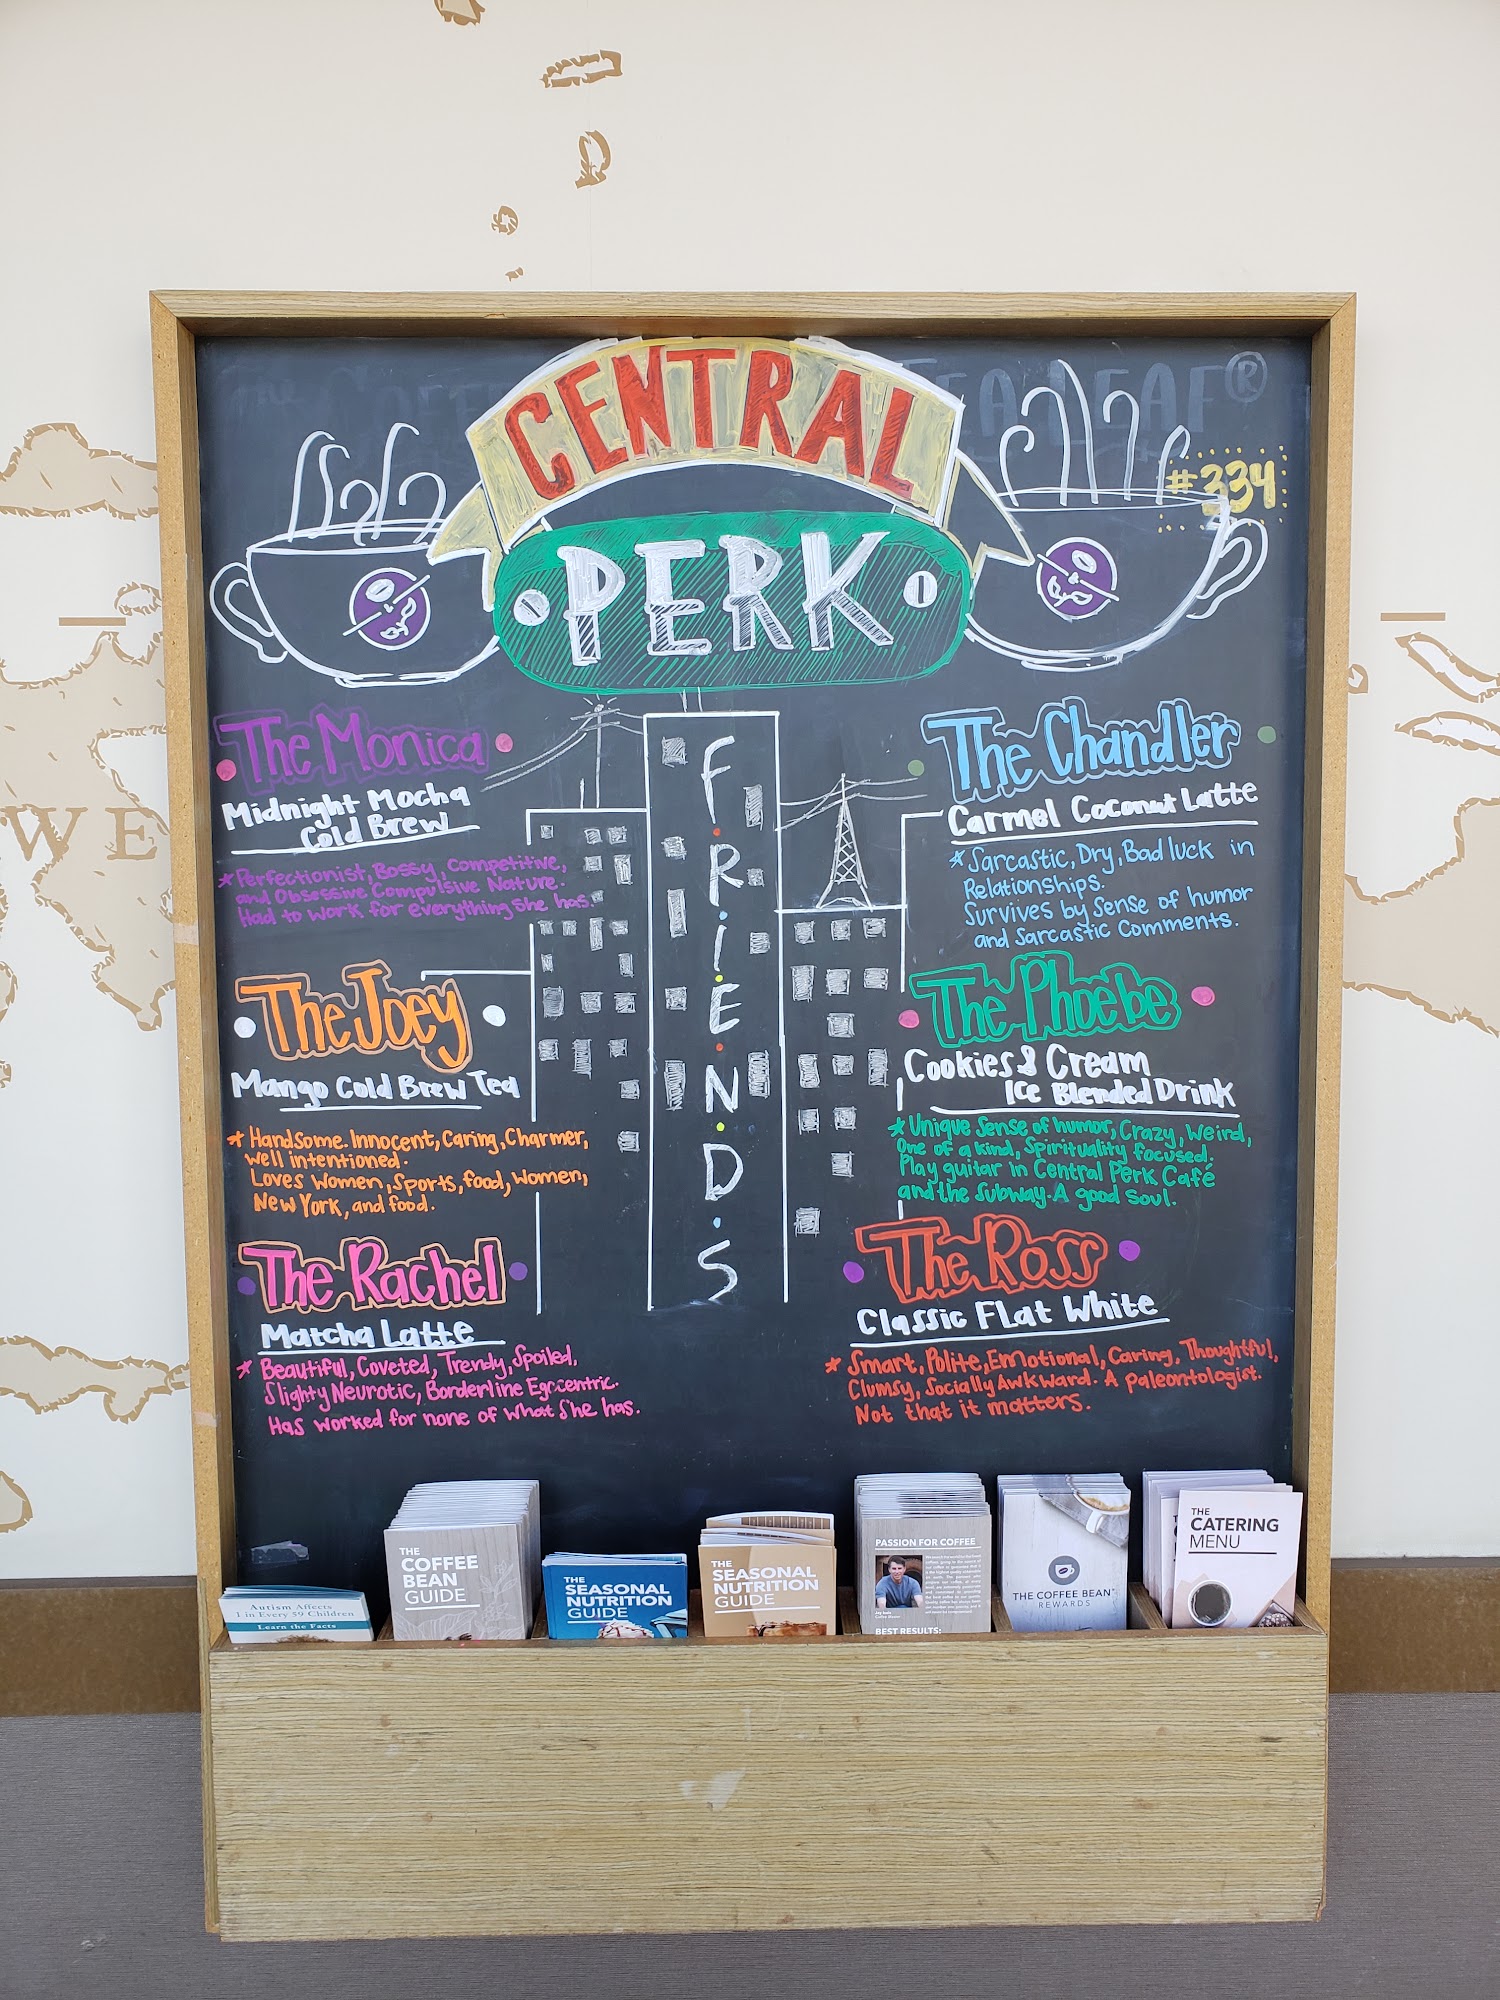 The Coffee
Tea Leaf®
CENTRAL
PERK
#334
F.R.I.E.N.D.S
The Monica
Midnight Mocha
Cold Brew
* Perfectionist, Bossy, Competitive,
and Obsessive Compulsive Nature.
Had to work for everything she has.
The Joey
Mango Cold Brew Tea
* Handsome. Innocent, Caring, Charmer,
well intentioned.
Loves Women, Sports, food, Women,
New York, and food.
The Rachel
Matcha Latte
* Beautiful, Coveted, Trendy, Spoiled,
Slighty Neurotic, Borderline Egocentric.
Has worked for none of what she has.
The Chandler
Carmel Coconut Latte
* Sarcastic, Dry, Bad luck in
Relationships.
Survives by sense of humor
and Sarcastic Comments.
The Phoebe
Cookies & Cream
Ice Blended Drink
* Unique Sense of humor, Crazy, Weird,
One of a kind, Spirituality focused.
Play guitar in Central Perk Café
and the Subway. A good soul.
The Ross
Classic Flat White
* Smart, Polite, Emotional, Caring, Thoughtful,
Clumsy, Socially Awkward. A paleontologist.
Not that it matters.
WE
Autism Affects
1 in Every 59 Children
Learn the Facts
THE
COFFEE
BEAN
GUIDE
THE
SEASONAL
NUTRITION
GUIDE
THE
SEASONAL
NUTRITION
GUIDE
PASSION FOR COFFEE
BEST RESULTS:
THE COFFEE BEAN™
REWARDS
THE
CATERING
MENU